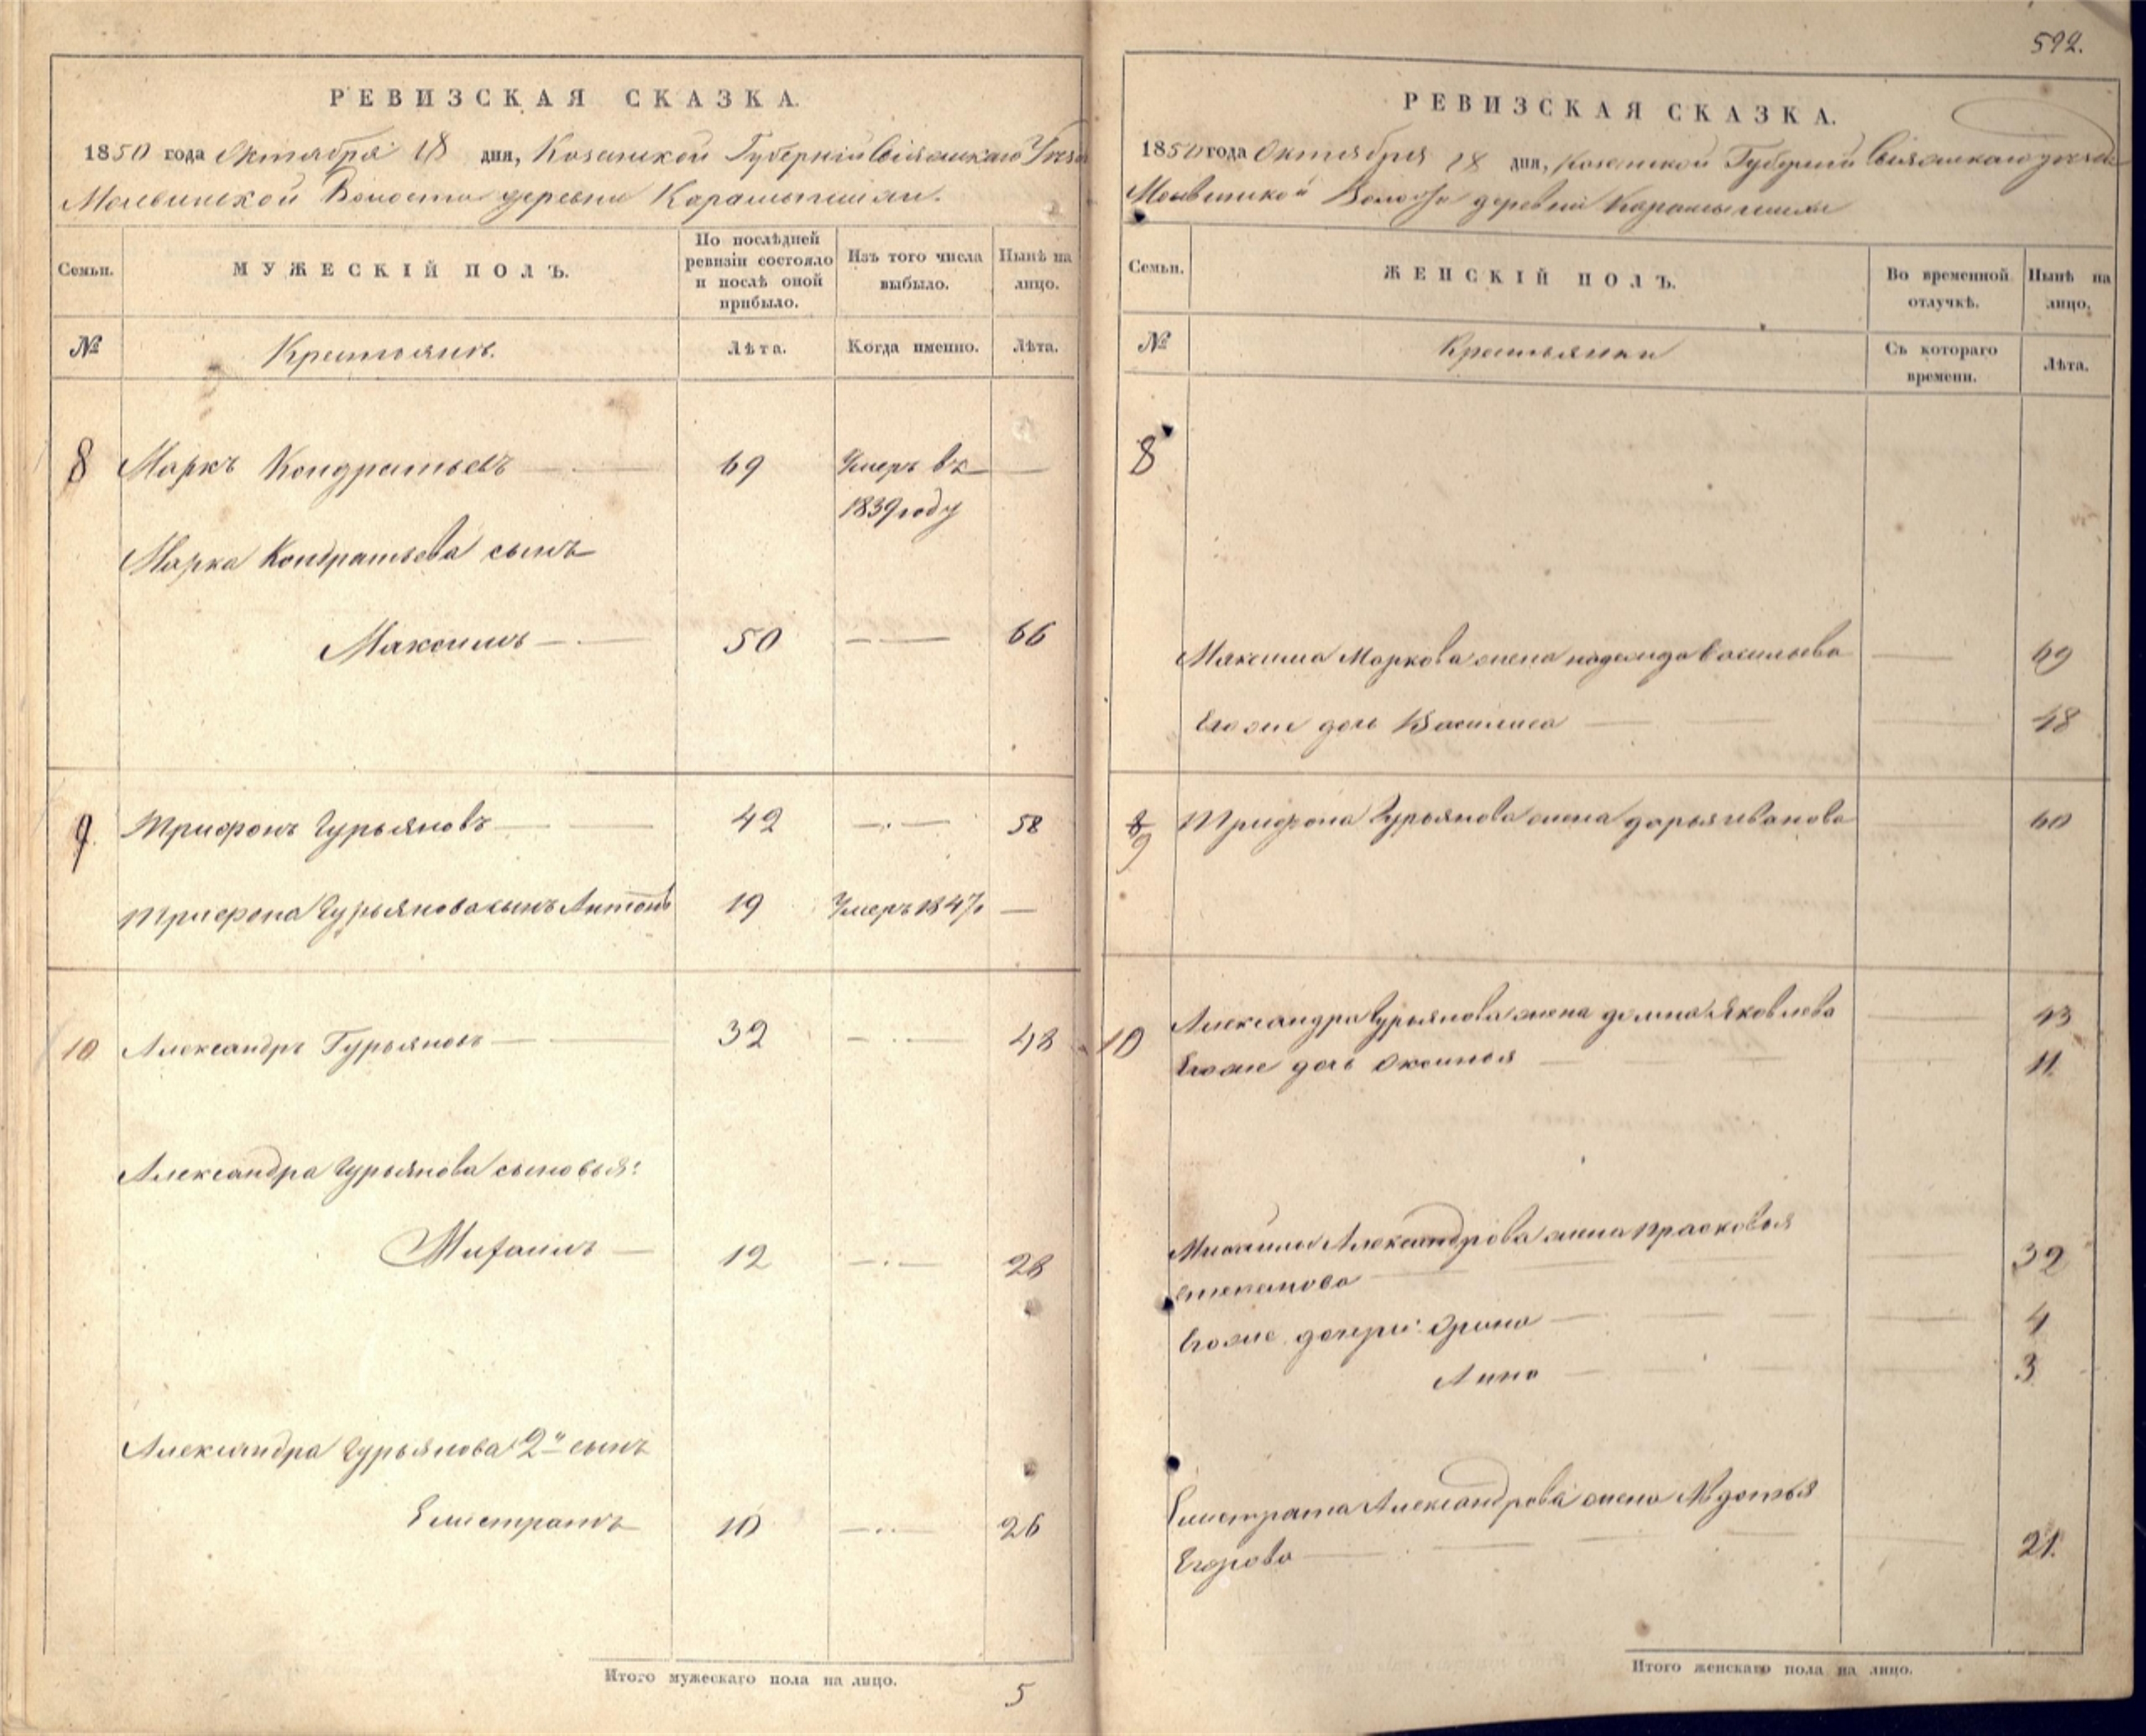 РЕВИЗСКАЯ СКАЗКА.
1850 года Октября 18 дня, Казанской Губернiи Свiяжскаго Уезда
Молвинской Волости деревни Карамышихи.
Семьи.
МУЖЕСКIЙ ПОЛЪ.
По послѣдней ревизiи состояло и послѣ оной прибыло.
Изъ того числа выбыло.
Нынѣ на лицо.
№
Крестьянъ.
Лѣта.
Когда именно.
Лѣта.
8 Маркъ Кондратьевъ 69 Умеръ въ
1839 году
Марка Кондратьева сынъ
Максимъ 50 66
9 Трифонъ Гурьяновъ 42 58
Трифона Гурьянова сынъ Антонъ 19 Умеръ 1847
10 Александръ Гурьяновъ 32 48
Александра Гурьянова сыновья:
Михаилъ 12 28
Александра Гурьянова 2й сынъ
Елистратъ 10 26
Итого мужескаго пола на лицо.
5
592.
РЕВИЗСКАЯ СКАЗКА.
1850 года Октября 18 дня, Казанской Губернiи Свiяжскаго уезда
Молвинской Волости деревни Карамышихи
Семьи.
ЖЕНСКIЙ ПОЛЪ.
Во временной отлучкѣ.
Нынѣ на лицо,
№
Крестьянки
Съ котораго времени.
Лѣта.
8
Максима Маркова жена надежда васильева 69
Егоже дочь Василиса 48
9 Трифона Гурьянова жена дарья иванова 60
10 Александра Гурьянова жена домна Яковлева 43
Егоже дочь Оксинья 11
Михаилы Александрова жена прасковья
степанова 32
Егоже дочери: Орина 4
Анна 3
Елистрата Александрова жена Авдотья
Егорова 21.
Итого женскаго пола на лицо.